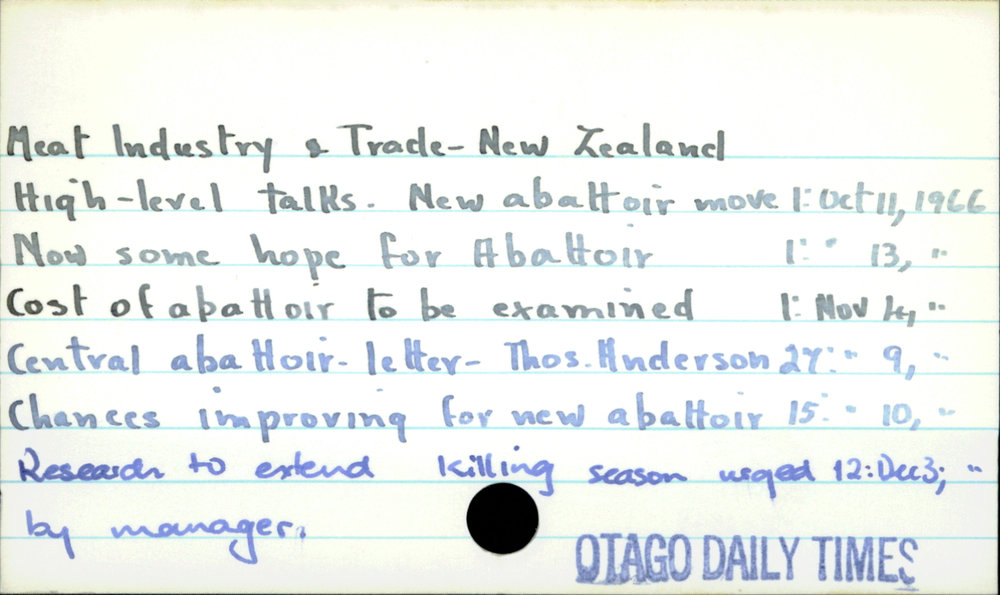 Meat Industry & Trade - New Zealand
High-level talks. New abattoir move 1: Oct 11, 1966
Now some hope for Abattoir 1: " 13, "
Cost of abattoir to be examined 1: Nov 4, "
Central abattoir - letter - Thos. Anderson 27: " 9, "
Chances improving for new abattoir 15: " 10, "
Research to extend killing season urged 12: Dec 3; "
by manager.
OTAGO DAILY TIMES